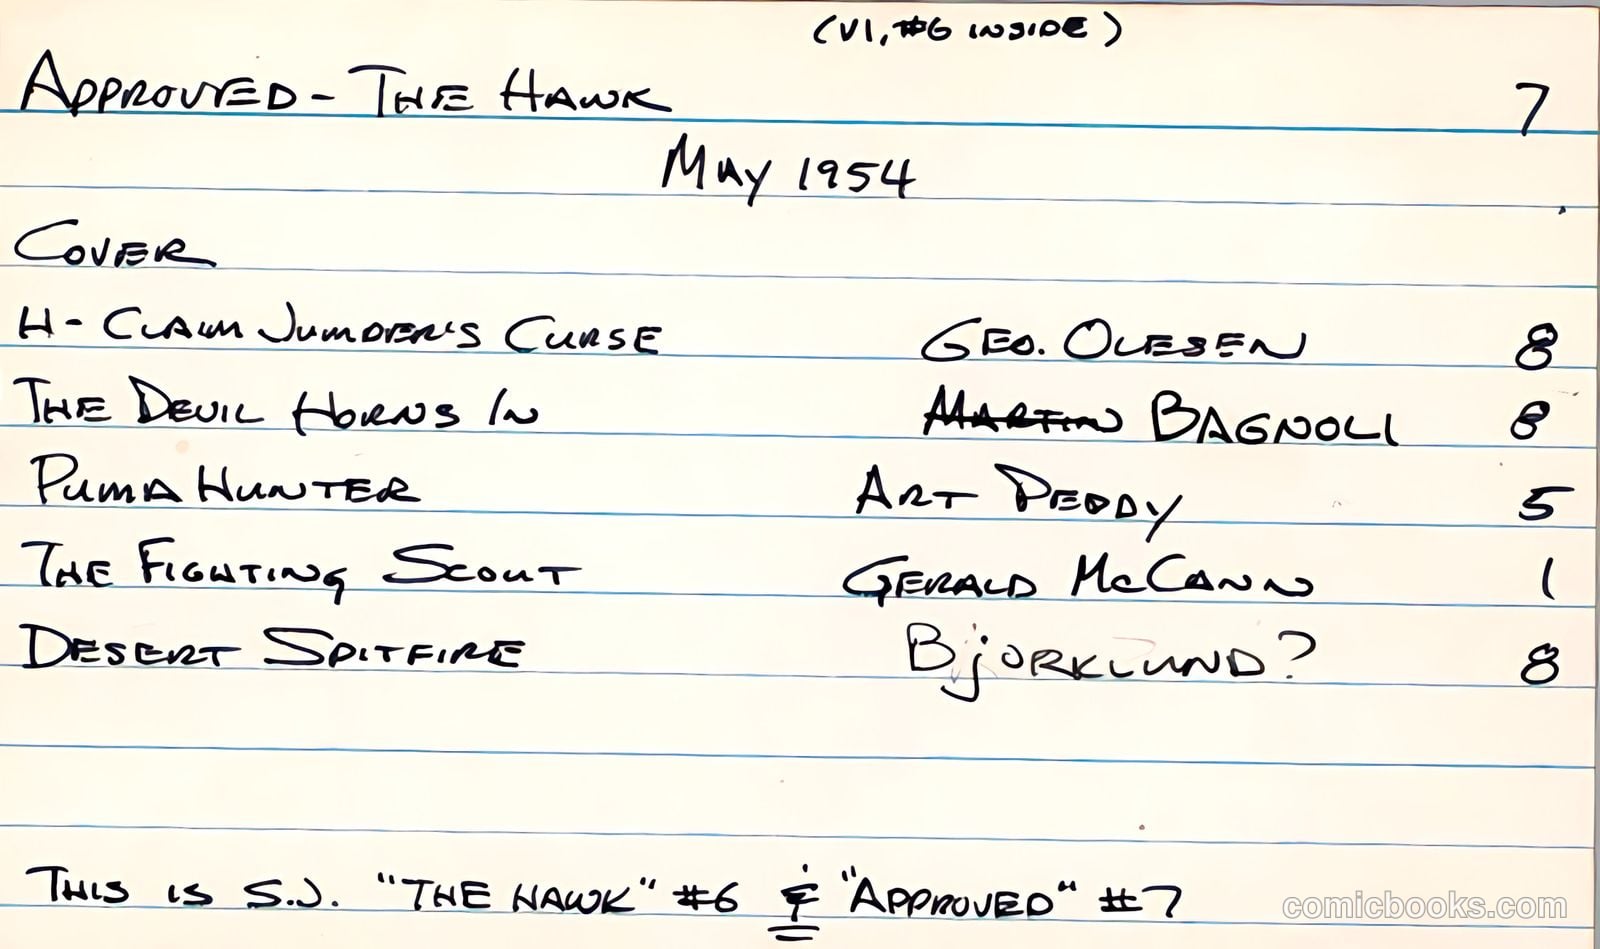 (V1, #6 INSIDE)
APPROVED - THE HAWK 7
MAY 1954
COVER
H - CLAIM JUMPER'S CURSE GEO. OLESEN 8
THE DEVIL HORNS IN MARTIN BAGNOLI 8
PUMA HUNTER ART PEDDY 5
THE FIGHTING SCOUT GERALD McCANN 1
DESERT SPITFIRE BjORKLUND? 8
THIS IS S.J. "THE HAWK" #6 & "APPROVED" #7
comicbooks.com